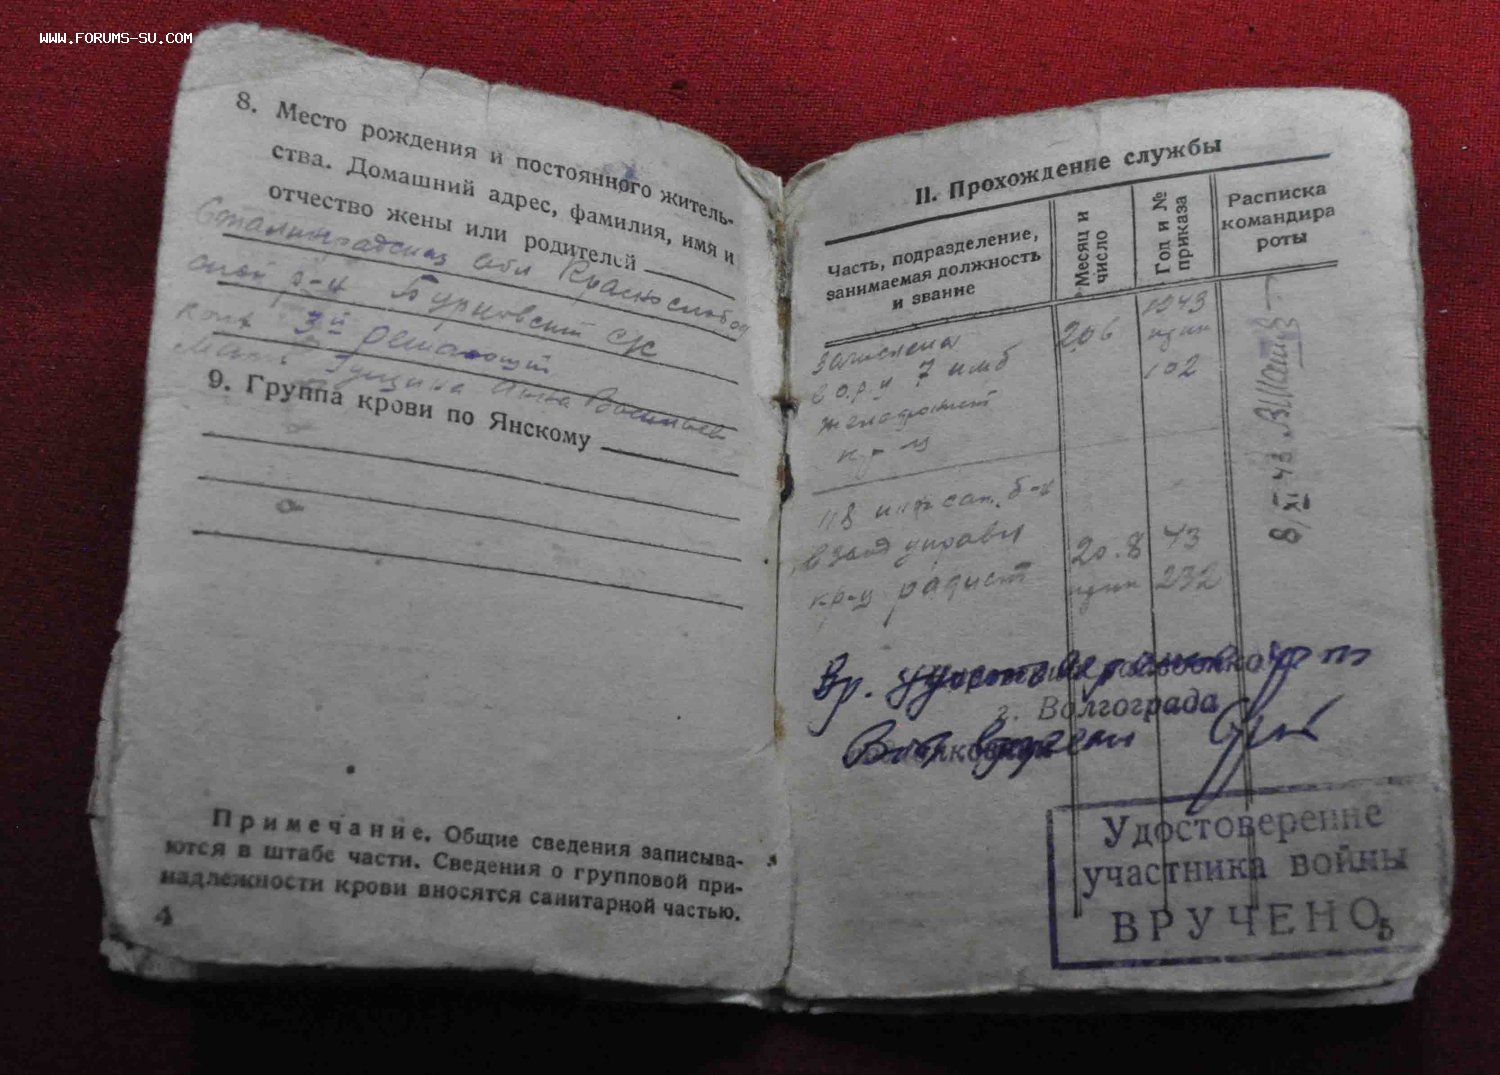 WWW.FORUMS-SU.COM
8. Место рождения и постоянного житель-
ства. Домашний адрес, фамилия, имя и
отчество жены или родителей
Сталинградская обл Краснослобод
ской р-н Бурковский с/с
колх 3й Решающий
Мать Анна
9. Группа крови по Янскому
Примечание. Общие сведения записыва-
ются в штабе части. Сведения о групповой при-
надлежности крови вносятся санитарной частью.
4
II. Прохождение службы
Часть, подразделение,
занимаемая должность
и звание
Месяц и
число
Год и №
приказа
Расписка
командира
роты
зачислена
20 6
1943
в 7
102
кр-ц
8/XI 43
118 б-н
в взвод управл
20.8
43
кр-ц радист
232
Вр.
г. Волгограда
Удостоверение
участника войны
ВРУЧЕНО
5